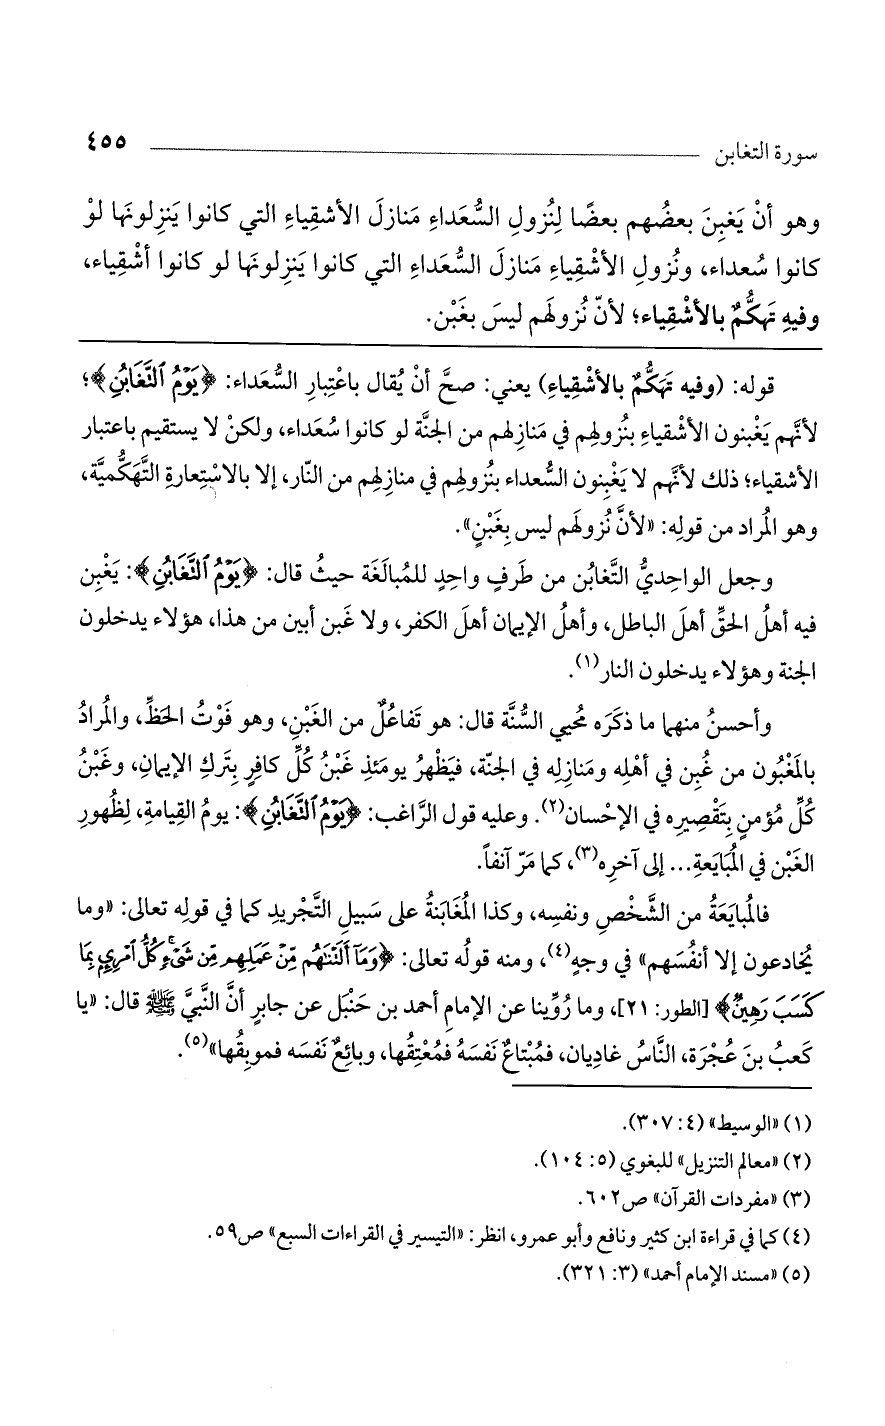 سورة التغابن ٤٥٥
وهو أنْ يَغبِنَ بعضُهم بعضًا لِنُزولِ السُّعَداءِ مَنازلَ الأشقِياءِ التي كانوا يَنزِلونَها لوْ
كانوا سُعداء، ونُزولِ الأشْقِياءِ مَنازلَ السُّعَداءِ التي كانوا يَنزِلونَها لو كانوا أشْقِياء،
وفيهِ تَهكُّمٌ بالأشْقِياء؛ لأنّ نُزولَهم ليسَ بغَبْن.
قوله: (وفيه تَهَكُّمٌ بالأشْقِياءِ) يعني: صحَّ أنْ يُقال باعْتِبارِ السُّعَداء: ﴿يَوْمُ ٱلنَّغَابُنِ﴾؛
لأنَّهم يَغْبنون الأشْقِياءَ بنُزولِهِم في مَنازِلهم من الجنَّة لو كانوا سُعَداء، ولكنْ لا يستقيم باعتبار
الأشقياء؛ ذلك لأنَّهم لا يَغْبِنون السُّعداء بنُزولهِم في منازِلهم من النّار، إلا بالاسْتِعارةِ التَّهَكُّميَّة،
وهو المُراد من قولِه: «لأنَّ نُزولَهم ليس بِغَبْنٍ».
وجعل الواحِديُّ التَّغابُن من طَرفٍ واحِدٍ للمُبالَغَة حيثُ قال: ﴿يَوْمُ ٱلنَّغَابُنِ﴾: يَغْبِن
فيه أهلُ الحقِّ أهلَ الباطل، وأهلُ الإيمان أهلَ الكفر، ولا غَبن أبين من هذا، هؤلاء يدخلون
الجنة وهؤلاء يدخلون النار(١).
وأحسنُ منهما ما ذكَرَه مُحيي السُّنَّة قال: هو تَفاعُلٌ من الغَبْنِ، وهو فَوْتُ الحَظِّ، والمُرادُ
بالمَغْبُون من غُبِن في أهْلِه ومَنازِله في الجنّة، فيَظْهرُ يومَئذِ غَبْنُ كُلِّ كافرٍ بِتَركِ الإيمانِ، وغَبْنُ
كُلِّ مُؤمنٍ بِتَقْصِيره في الإحْسان(٢). وعليه قول الرَّاغب: ﴿يَوْمُ ٱلنَّغَابُنِ﴾: يومُ القِيامةِ، لِظُهورِ
الغَبْن في المُبَايَعةِ... إلى آخرِه(٣)، كما مَرّ آنفاً.
فالمُبايَعةُ من الشَّخْصِ ونفسِه، وكذا المُغَابنةُ على سَبيلِ التَّجْريدِ كما في قولِه تعالى: «وما
يُخادعون إلا أنفُسَهم» في وجهٍ(٤)، ومنه قولُه تعالى: ﴿وَمَآ أَلَتْنَٰهُم مِّنْ عَمَلِهِم مِّن شَىْءٍ كُلُّ ٱمْرِىٍٕ بِمَا
كَسَبَ رَهِينٌ﴾ [الطور: ٢١]، وما رُوِّينا عن الإمامِ أحمد بن حَنْبَل عن جابرٍ أنَّ النَّبيَّ ﷺ قال: «يا
كَعبُ بنَ عُجْرَة، النَّاسُ غادِيان، فمُبْتاعٌ نَفسَهُ فمُعْتِقُها، وبائِعٌ نَفسَه فموبِقُها»(٥).
(١) «الوسيط» (٤: ٣٠٧).
(٢) «معالم التنزيل» للبغوي (٥: ١٠٤).
(٣) «مفردات القرآن» ص٦٠٢.
(٤) كما في قراءة ابن كثير ونافع وأبو عمرو، انظر: «التيسير في القراءات السبع» ص٥٩.
(٥) «مسند الإمام أحمد» (٣: ٣٢١).